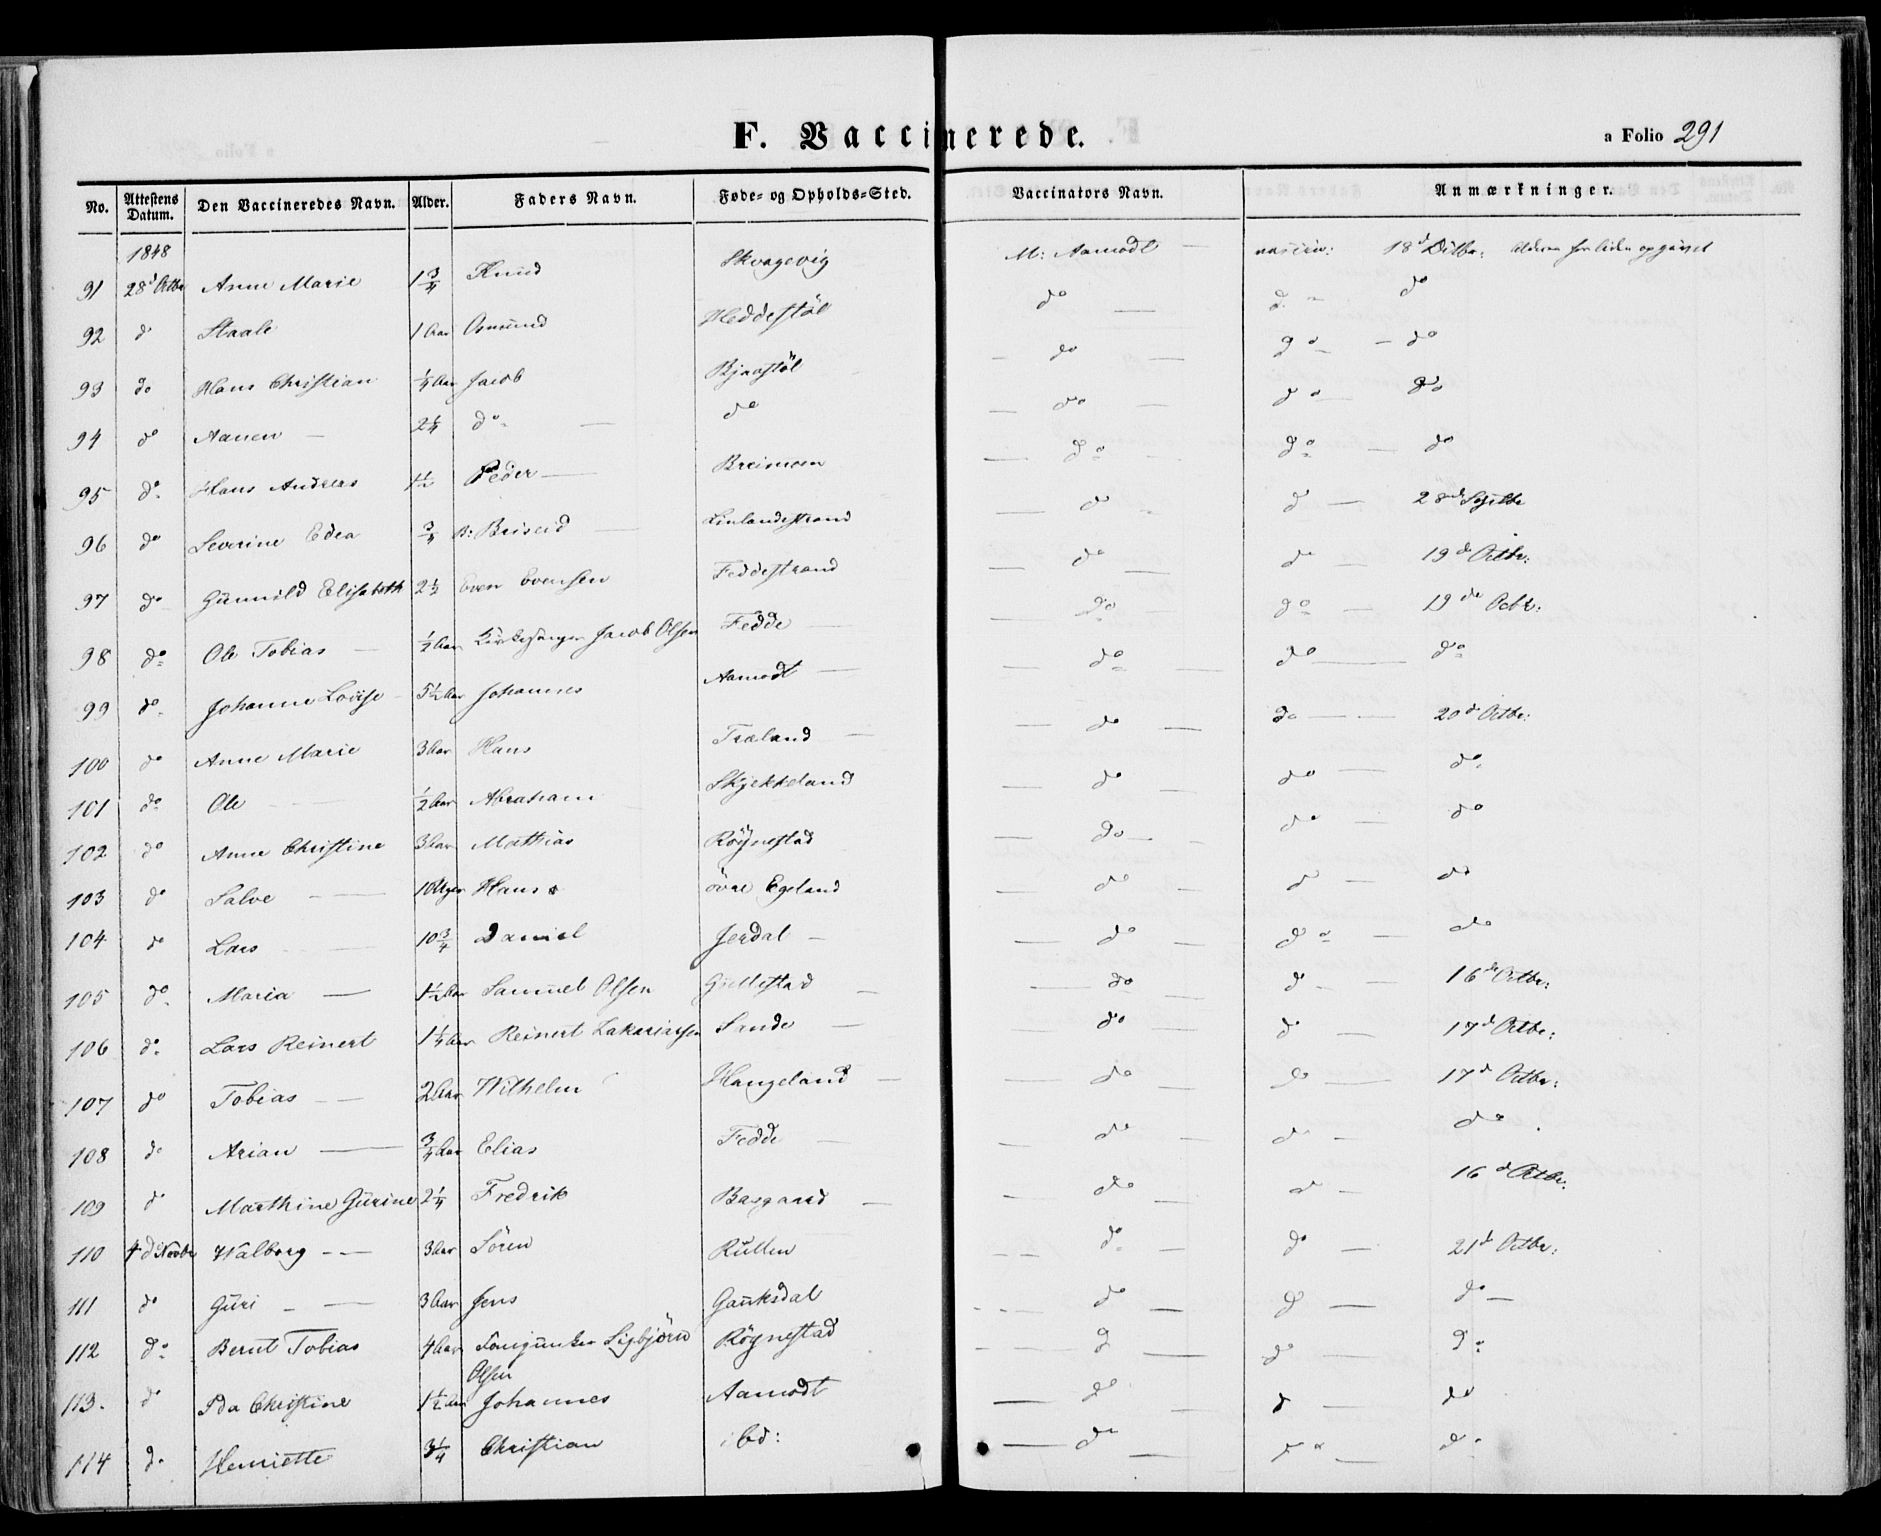 F. Vaccinerede.
a Folio 291
No. Attestens Datum. Den Vaccineredes Navn. Alder. Faders Navn. Føde- og Opholds-Sted. Vaccinators Navn. Anmærkninger.
1848
91 28d Octbr Anne Marie 1 3/4 Knud Skvagevig M: Aamodt 18d Octbr:
92 do Staale 1 Aar Osmund Heddestöl do do do
93 do Hans Christian 1/4 Aar Jacob Bjaastöl do do do
94 do Aanen 2 1/4 do do do do do
95 do Hans Andreas 1 1/2 Peder Breimoen do do do
96 do Severine Edea 3/4 B: Briseid Linlandsstrand do do 28de Septbr
97 do Gunnild Elisabeth 2 1/2 Even Evensen Feddestrand do do 19de Octbr:
98 do Ole Tobias 1/2 Aar Kirkesanger Jacob Olsen Fedde do do 19de Octbr:
99 do Johanne Lovise 5 1/2 Aar Johannes Aamodt do do do
100 do Anne Marie 3 Aar Hans Træland do do 20de Octbr:
101 do Ole 1/2 Aar Abraham Skjekkeland do do do
102 do Anne Christine 3 Aar Mathias Røgnestad do do do
103 do Salve 10 Uger Hans övre Egeland do do do
104 do Lars 10 3/4 Daniel Jerdal do do do
105 do Maria 1 1/2 Aar Samuel Olsen Gullestad do do 16de Octbr:
106 do Lars Reinert 1 1/4 Aar Reinert Zakariassen Sande do do 17d Octbr:
107 do Tobias 2 Aar Wilhelm Haugeland do do 17d Octbr:
108 do Arian 3/4 Aar Elias Fedde do do do
109 do Marthine Gurine 2 1/4 Fredrik Basgaard do do 16d Octbr:
110 4d Novbr Walborg 3 Aar Sören Rullen do do 21d Octbr:
111 do Guri 3 Aar Jens Gauksdal do do do
112 do Bernt Tobias 4 Aar Sigbjörn Røgnestad do do do
Olsen
113. do Ida Christine 1 1/2 Aar Johannes Aamodt do do do
114 do Henriette 3 1/4 Christian ibd: do do do